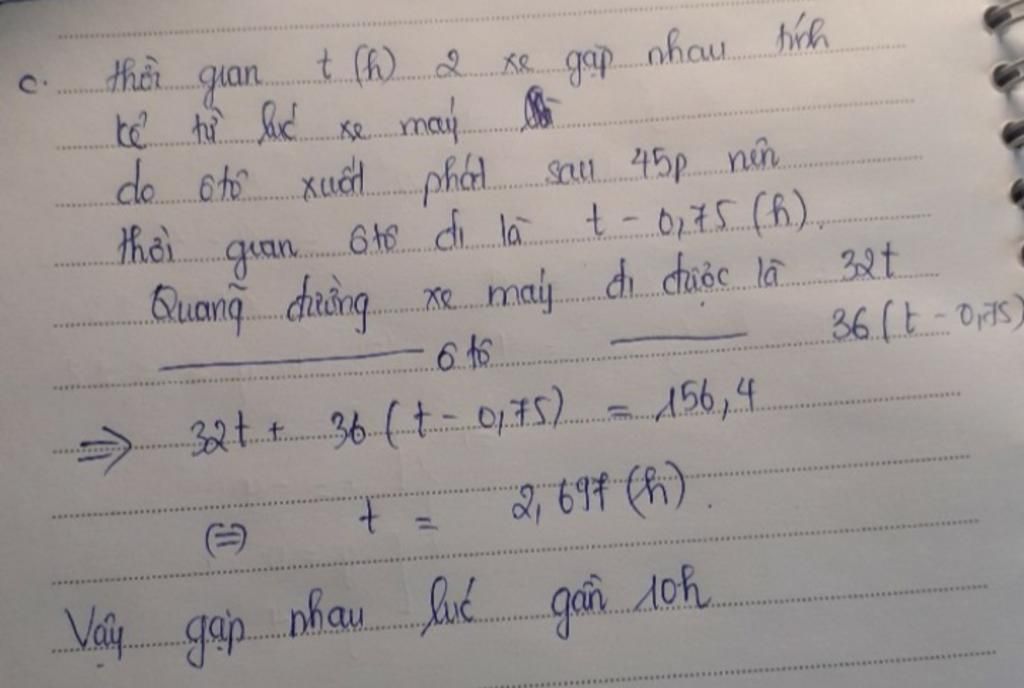 c. thời gian t (h) 2 xe gặp nhau tính
kể từ lúc xe máy
do ôtô xuất phát sau 45p nên
thời gian ôtô đi là t - 0,75 (h).
Quãng đường xe máy đi được là 32t
ôtô 36 (t - 0,75)
⇒ 32t + 36 (t - 0,75) = 156,4
(=) t = 2,697 (h).
Vậy gặp nhau lúc gần 10h